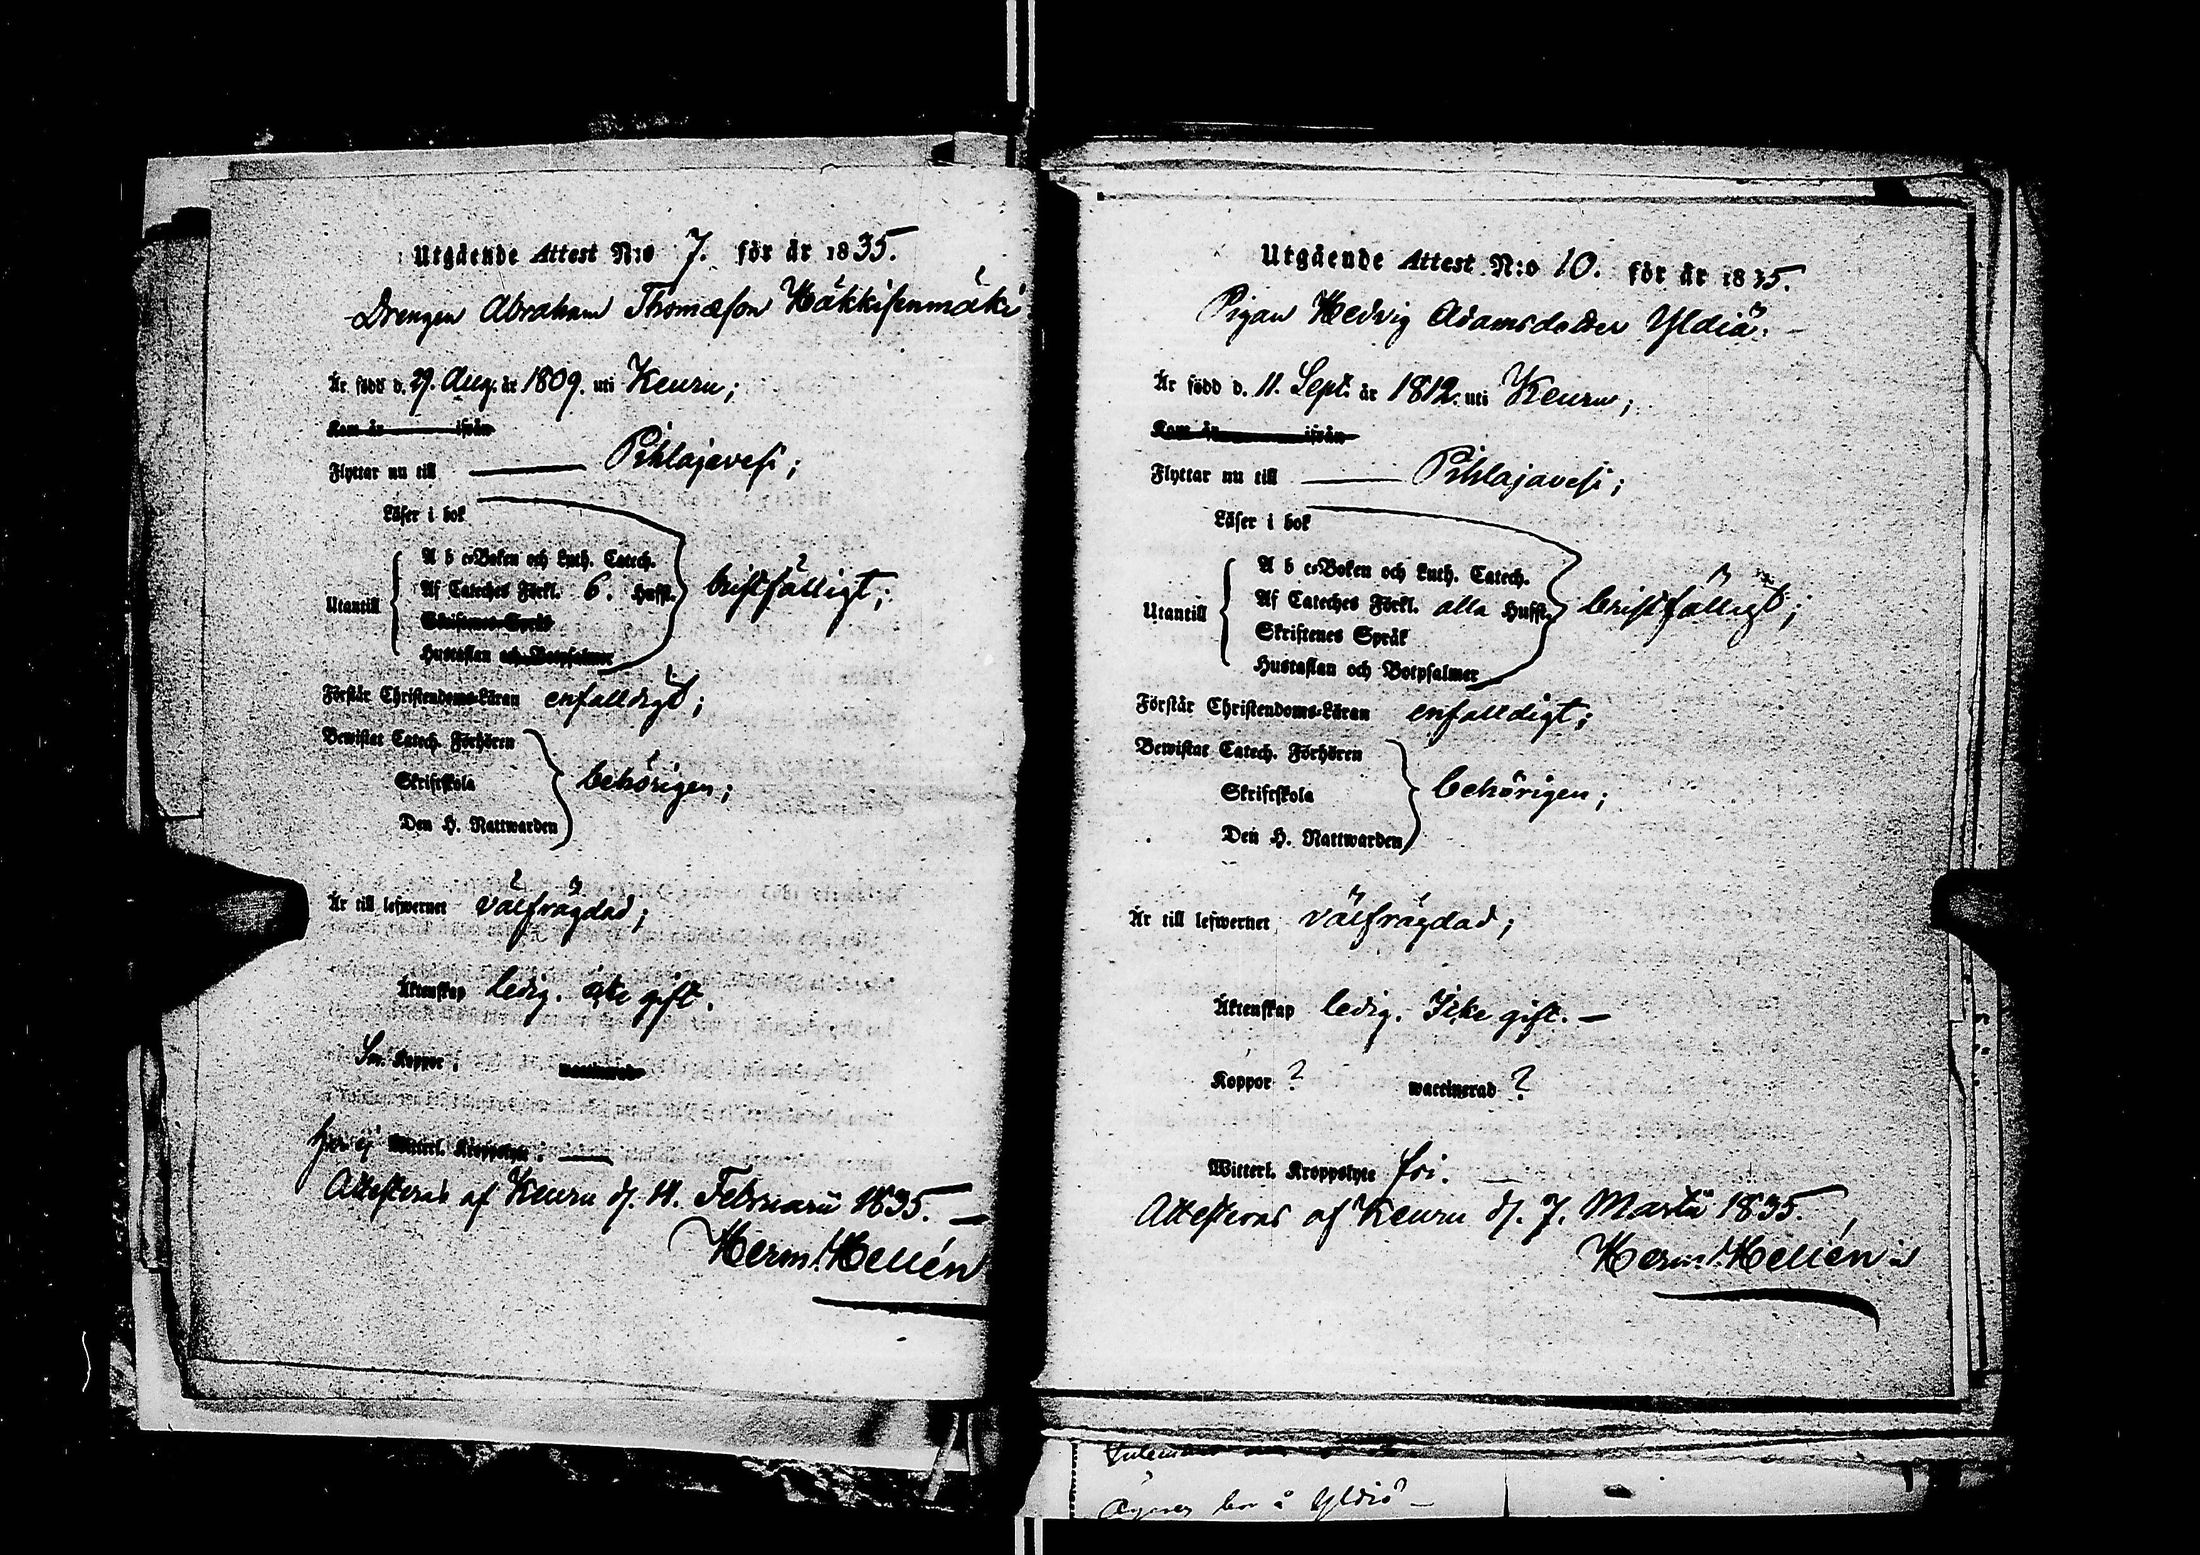 Utgående Attest N:o 7. för år 1835.
Drengen Abraham Thomæson Häkkisenmäki
Är född d. 29. Aug. år 1809. uti Keuru;
Kom år ifrån
Flyttar nu till Pihlajavesi;
Läser i bok
A b c-Boken och Luth. Catech.
Af Cateches Förkl. 6. Hufst. bristfälligt;
Utantill
Skriftenes Språk
Hustaflan och Botpsalmer
Förstår Christendoms-Läran enfalldigt;
Bewistat Catech. Förhören
Skriftskola behörigen;
Den H. Nattwarden
Är till lefwernet välfrägdad;
Äktenskap ledig. gift.
Koppor; waccinerad
ej Witterl. Kroppslyte;
Attesteras af Keuru d. Februarii 1835.
Herm. Hellén
Utgående Attest N:o 10. för år 1835.
Pigan Hedvig Adamsdotter Yldiä.
Är född d. 11. Sept. år 1812. uti Keuru;
Kom år ifrån
Flyttar nu till Pihlajavesi;
Läser i bok
A b c-Boken och Luth. Catech.
Af Cateches Förkl. alla Hufst. bristfälligt;
Utantill
Skriftenes Språk
Hustaflan och Botpsalmer
Förstår Christendoms-Läran enfalldigt;
Bewistat Catech. Förhören
Skriftskola behörigen;
Den H. Nattwarden
Är till lefwernet välfrägdad;
Äktenskap ledig. Icke gift.
Koppor ? waccinerad ?
Witterl. Kroppslyte fri.
Attesteras af Keuru d. 7. Martii 1835.
Herm. Hellén
å Yldiä